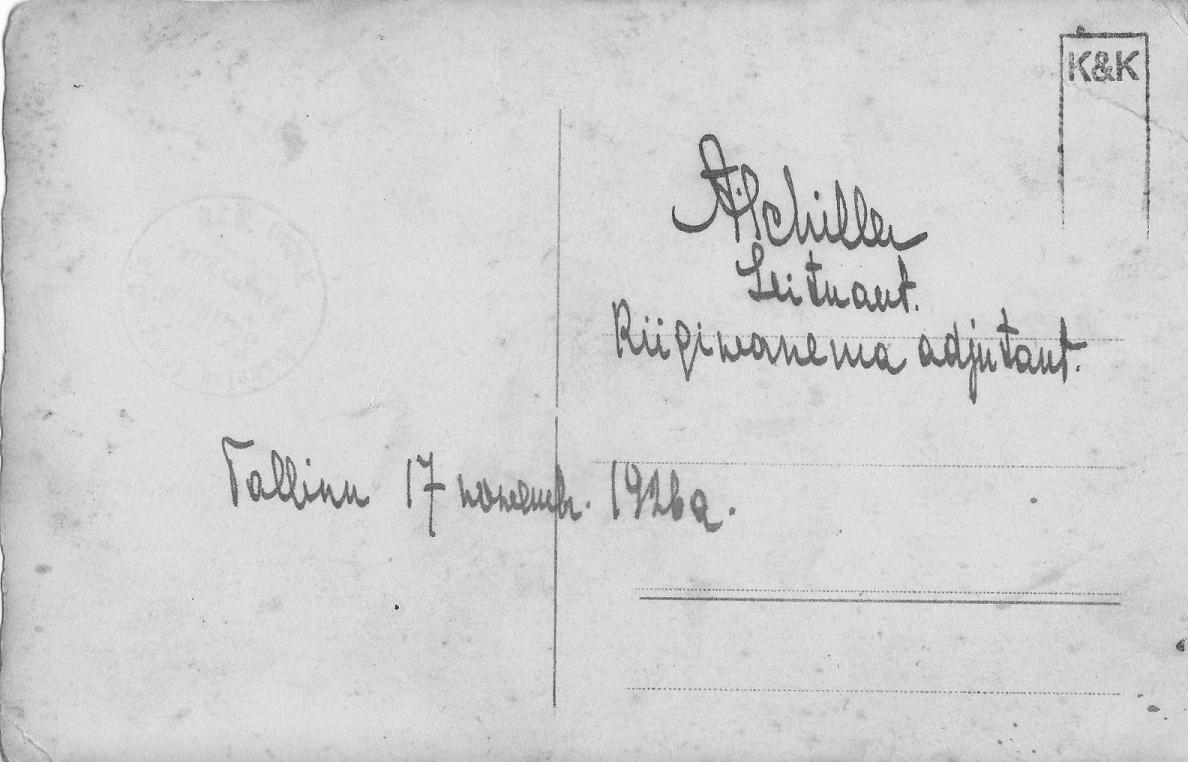 K&K
A.Schiller
Leitnant.
Riigiwanema adjutant.
Tallinn 17 novembr. 1926a.